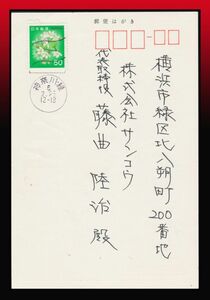 郵便はがき
日本郵便
50
神奈川・緑
12-18
横浜市緑区北八朔町
200番地
株式会社サンコウ
代表取締役
藤曲陸治殿